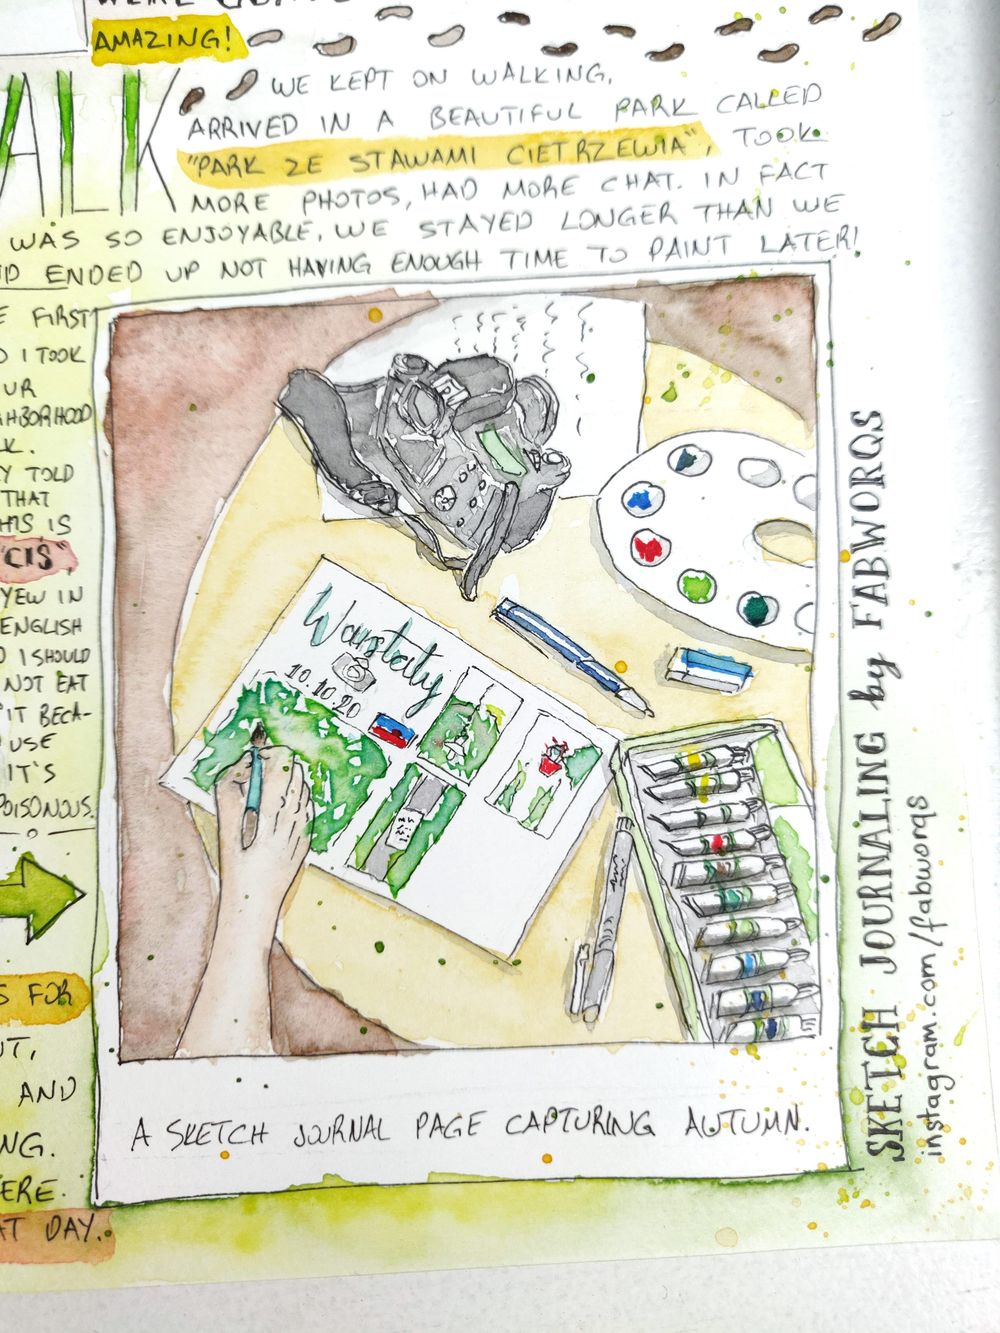 AMAZING!
ALK
WE KEPT ON WALKING,
ARRIVED IN A BEAUTIFUL PARK CALLED
"PARK ZE STAWAMI CIETRZEWIA", TOOK
MORE PHOTOS, HAD MORE CHAT. IN FACT
WAS SO ENJOYABLE, WE STAYED LONGER THAN WE
ENDED UP NOT HAVING ENOUGH TIME TO PAINT LATER!
FIRST
I TOOK
UR
HBORHOOD
K.
TOLD
THAT
IS
"CIS"
YEW IN
ENGLISH
I SHOULD
NOT EAT
IT BECA-
USE
IT'S
POISONOUS.
FOR
UT,
AND
NG.
ERE.
AT DAY.
10.10.20
A SKETCH JOURNAL PAGE CAPTURING AUTUMN.
SKETCH JOURNALING by FABWORQS
instagram.com/fabworqs